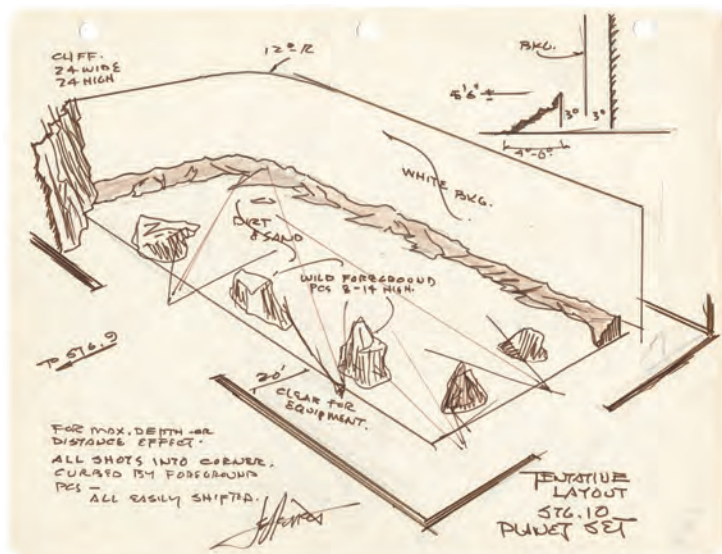 CLIFF.
24 WIDE
24 HIGH
12° R
BKG.
5'6" ±
3°
3°
4'-0"
WHITE BKG.
DIRT
& SAND
WILD FOREGROUND
PCS 8-14 HIGH.
TO STG. 9
20'
CLEAR FOR
EQUIPMENT.
FOR MAX. DEPTH OR
DISTANCE EFFECT.
ALL SHOTS INTO CORNER.
CURBED BY FOREGROUND
PCS —
ALL EASILY SHIFTED.
TENTATIVE
LAYOUT
STG. 10
PLANET SET